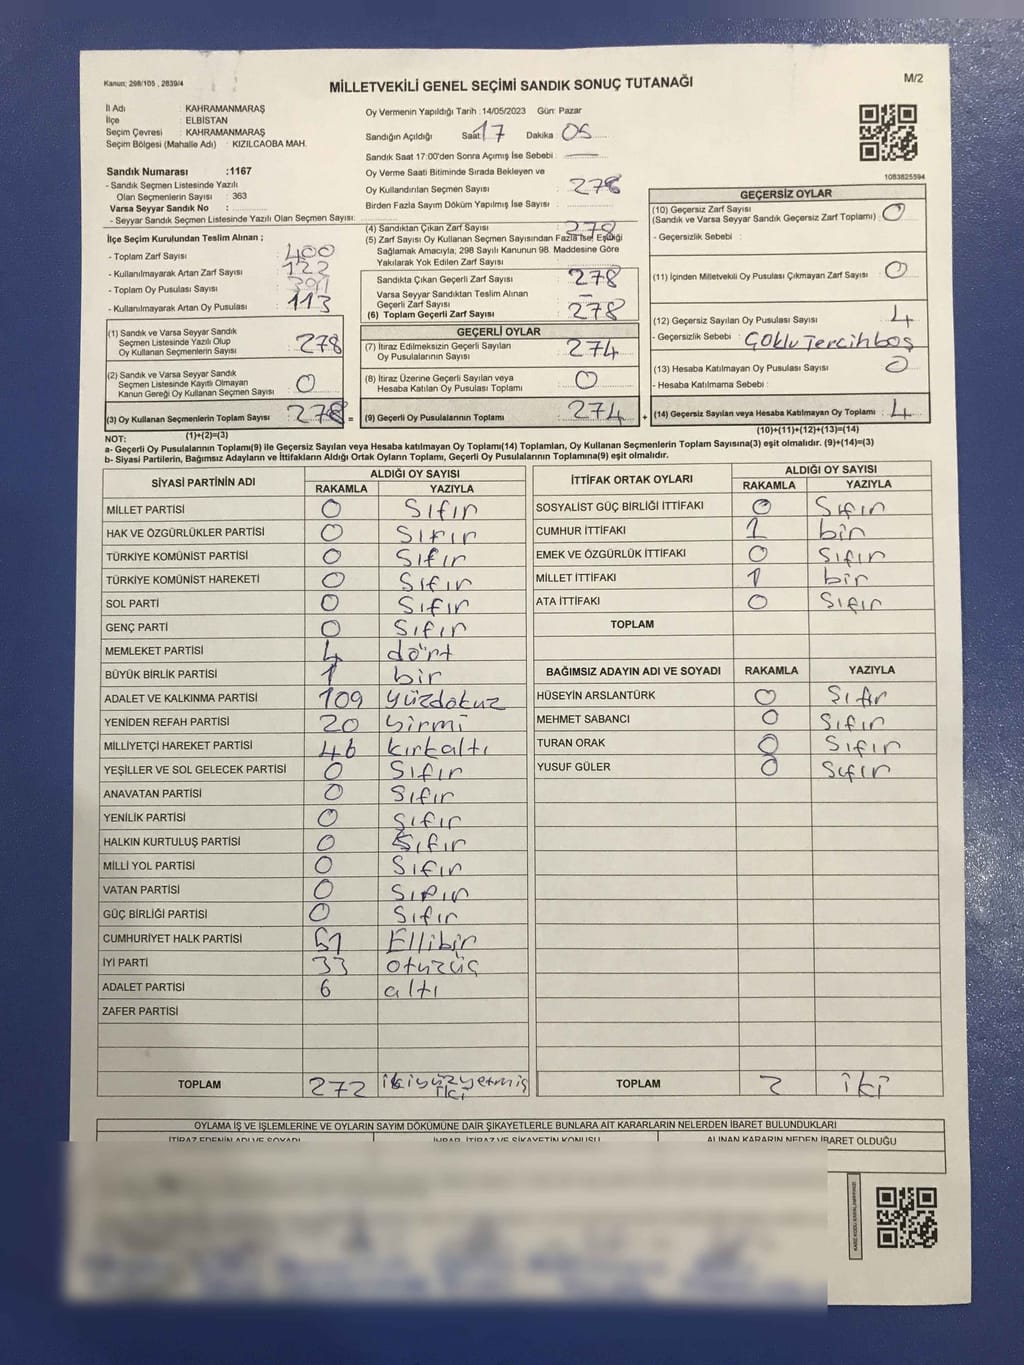 Kanun: 298/105 , 2839/4
MİLLETVEKİLİ GENEL SEÇİMİ SANDIK SONUÇ TUTANAĞI
M/2
İl Adı : KAHRAMANMARAŞ
İlçe : ELBİSTAN
Seçim Çevresi : KAHRAMANMARAŞ
Seçim Bölgesi (Mahalle Adı) : KIZILCAOBA MAH.
Sandık Numarası :1167
- Sandık Seçmen Listesinde Yazılı
Olan Seçmenlerin Sayısı : 363
Varsa Seyyar Sandık No :
- Seyyar Sandık Seçmen Listesinde Yazılı Olan Seçmen Sayısı:
Oy Vermenin Yapıldığı Tarih :14/05/2023 Gün: Pazar
Sandığın Açıldığı Saat 17 Dakika : 05
Sandık Saat 17:00'den Sonra Açımış İse Sebebi :
Oy Verme Saati Bitiminde Sırada Bekleyen ve
Oy Kullandırılan Seçmen Sayısı : 278
Birden Fazla Sayım Döküm Yapılmış İse Sayısı :
1083825594
İlçe Seçim Kurulundan Teslim Alınan ;
- Toplam Zarf Sayısı : 400
- Kullanılmayarak Artan Zarf Sayısı : 122
- Toplam Oy Pusulası Sayısı :
- Kullanılmayarak Artan Oy Pusulası : 113
(1) Sandık ve Varsa Seyyar Sandık
Seçmen Listesinde Yazılı Olup
Oy Kullanan Seçmenlerin Sayısı : 278
(2) Sandık ve Varsa Seyyar Sandık
Seçmen Listesinde Kayıtlı Olmayan
Kanun Gereği Oy Kullanan Seçmen Sayısı : 0
(3) Oy Kullanan Seçmenlerin Toplam Sayısı : 278 =
(1)+(2)=(3)
(4) Sandıktan Çıkan Zarf Sayısı : 278
(5) Zarf Sayısı Oy Kullanan Seçmen Sayısından Fazla İse, Eşitliği
Sağlamak Amacıyla, 298 Sayılı Kanunun 98. Maddesine Göre
Yakılarak Yok Edilen Zarf Sayısı :
Sandıkta Çıkan Geçerli Zarf Sayısı : 278
Varsa Seyyar Sandıktan Teslim Alınan
Geçerli Zarf Sayısı : –
(6) Toplam Geçerli Zarf Sayısı : 278
GEÇERLİ OYLAR
(7) İtiraz Edilmeksizin Geçerli Sayılan
Oy Pusulalarının Sayısı : 274
(8) İtiraz Üzerine Geçerli Sayılan veya
Hesaba Katılan Oy Pusulası Toplamı : 0
(9) Geçerli Oy Pusulalarının Toplamı : 274 +
GEÇERSİZ OYLAR
(10) Geçersiz Zarf Sayısı
(Sandık ve Varsa Seyyar Sandık Geçersiz Zarf Toplamı) : 0
- Geçersizlik Sebebi :
(11) İçinden Milletvekili Oy Pusulası Çıkmayan Zarf Sayısı : 0
(12) Geçersiz Sayılan Oy Pusulası Sayısı : 4
- Geçersizlik Sebebi : Çoklu Tercih boş
(13) Hesaba Katılmayan Oy Pusulası Sayısı : 0
- Hesaba Katılmama Sebebi :
(14) Geçersiz Sayılan veya Hesaba Katılmayan Oy Toplamı : 4
(10)+(11)+(12)+(13)=(14)
NOT:
a- Geçerli Oy Pusulalarının Toplamı(9) ile Geçersiz Sayılan veya Hesaba katılmayan Oy Toplamı(14) Toplamları, Oy Kullanan Seçmenlerin Toplam Sayısına(3) eşit olmalıdır. (9)+(14)=(3)
b- Siyasi Partilerin, Bağımsız Adayların ve İttifakların Aldığı Ortak Oyların Toplamı, Geçerli Oy Pusulalarının Toplamına(9) eşit olmalıdır.
SİYASİ PARTİNİN ADI ALDIĞI OY SAYISI
RAKAMLA YAZIYLA
MİLLET PARTİSİ 0 Sıfır
HAK VE ÖZGÜRLÜKLER PARTİSİ 0 Sıfır
TÜRKİYE KOMÜNİST PARTİSİ 0 Sıfır
TÜRKİYE KOMÜNİST HAREKETİ 0 Sıfır
SOL PARTİ 0 Sıfır
GENÇ PARTİ 0 Sıfır
MEMLEKET PARTİSİ 4 dört
BÜYÜK BİRLİK PARTİSİ 1 bir
ADALET VE KALKINMA PARTİSİ 109 yüzdokuz
YENİDEN REFAH PARTİSİ 20 yirmi
MİLLİYETÇİ HAREKET PARTİSİ 46 kırkaltı
YEŞİLLER VE SOL GELECEK PARTİSİ 0 Sıfır
ANAVATAN PARTİSİ 0 Sıfır
YENİLİK PARTİSİ 0 Sıfır
HALKIN KURTULUŞ PARTİSİ 0 Sıfır
MİLLİ YOL PARTİSİ 0 Sıfır
VATAN PARTİSİ 0 Sıfır
GÜÇ BİRLİĞİ PARTİSİ 0 Sıfır
CUMHURİYET HALK PARTİSİ 51 Ellibir
İYİ PARTİ 33 otuzüç
ADALET PARTİSİ 6 altı
ZAFER PARTİSİ
TOPLAM 272 ikiyüzyetmiş iki
İTTİFAK ORTAK OYLARI ALDIĞI OY SAYISI
RAKAMLA YAZIYLA
SOSYALİST GÜÇ BİRLİĞİ İTTİFAKI 0 Sıfır
CUMHUR İTTİFAKI 1 bir
EMEK VE ÖZGÜRLÜK İTTİFAKI 0 Sıfır
MİLLET İTTİFAKI 1 bir
ATA İTTİFAKI 0 Sıfır
TOPLAM
BAĞIMSIZ ADAYIN ADI VE SOYADI RAKAMLA YAZIYLA
HÜSEYİN ARSLANTÜRK 0 Sıfır
MEHMET SABANCI 0 Sıfır
TURAN ORAK 0 Sıfır
YUSUF GÜLER 0 Sıfır
TOPLAM 2 iki
OYLAMA İŞ VE İŞLEMLERİNE VE OYLARIN SAYIM DÖKÜMÜNE DAİR ŞİKAYETLERLE BUNLARA AİT KARARLARIN NELERDEN İBARET BULUNDUKLARI
İTİRAZ EDENİN ADI VE SOYADI İHBAR, İTİRAZ VE ŞİKAYETİN KONUSU ALINAN KARARIN NEDEN İBARET OLDUĞU